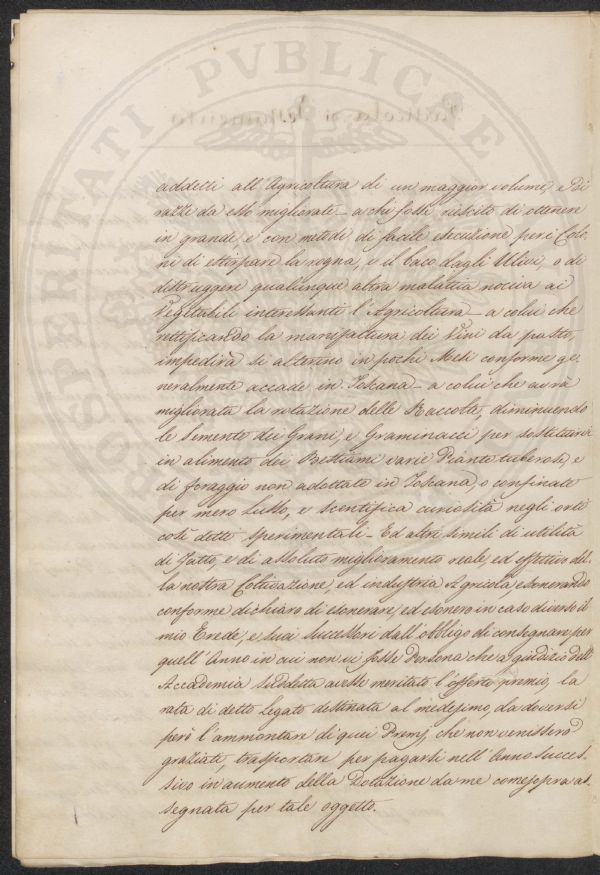 PROSPERITATI PVBLICAE
addetti all'Agricoltura di un maggior volume, e di
razze da esso migliorate – a chi fosse riescito di ottenere
in grande, e con metodi di facile esecuzione per i Colo,
ni di estirpare la rogna, e il baco dagli Ulivi, o di
distruggere qualunque altra malattia nociva ai
Vegetabili interessanti l'Agricoltura – a colui che
rettificando la manifattura dei Vini da pasto,
impedirà si alterino in pochi Mesi conforme ge,
neralmente accade in Toscana – a colui che avrà
migliorata la rotazione delle Raccolte, diminuendo
le Semente dei Grani, e Graminacci per sostituire
in alimento dei Bestiami varie Piante tuberose, e
di foraggio non adottate in Toscana, o confinate
per mero lusso, e scentifica curiosità negli orti
così detti sperimentali – Ed altri simili di utilità
di fatto, e di assoluto miglioramento reale, ed effettivo del-
la nostra Coltivazione, ed industria Agricola, esonerando
conforme dichiaro di esonerare, ed esonero in caso diverso il
mio Erede, e suoi Successori dall'obbligo di consegnare, per
quell'Anno in cui non vi fosse Persona che a giudizio dell'
Accademia sudetta avesse meritato l'offerto premio, la
rata di detto Legato destinata al medesimo, da doversi
però l'ammontare di quei Premj, che non venissero
graziati trasportare per pagarsi nell'Anno succes-
sivo in aumento della Dotazione da me come sopra as-
segnata per tale oggetto.